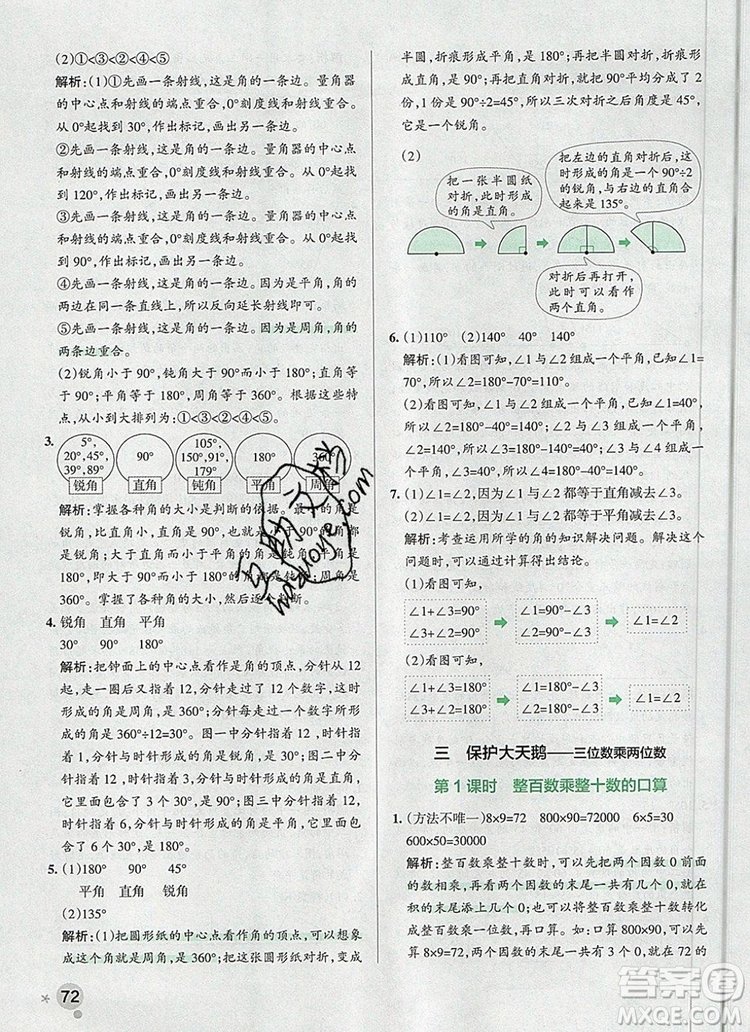 (2)①<③<②<④<⑤
解析：(1)①先画一条射线，这是角的一条边。量角器
的中心点和射线的端点重合，0°刻度线和射线重合。
从0°起找到30°，作出标记，画出另一条边。
②先画一条射线，这是角的一条边。量角器的中心点
和射线的端点重合，0°刻度线和射线重合。从0°起找
到120°，作出标记，画出另一条边。
③先画一条射线，这是角的一条边。量角器的中心点
和射线的端点重合，0°刻度线和射线重合。从0°起找
到90°，作出标记，画出另一条边。
④先画一条射线，这是角的一条边。因为是平角，角的
两边在同一条直线上，所以反向延长射线即可。
⑤先画一条射线，这是角的一条边。因为是周角，角的
两条边重合。
(2)锐角小于90°，钝角大于90°而小于180°，直角等
于90°，平角等于180°，周角等于360°。根据这些特
点，从小到大排列为：①<③<②<④<⑤。
3. 5°，20°，45°，39°，89° 90° 105°，150°，91°，179° 180° 360°
锐角 直角 钝角 平角 周角
解析：掌握各种角的大小是判断的依据。最小的角是
锐角，比直角小，直角是90°，所以小于90°的角是锐
角；大于90°而小于180°的角是钝角；等于180°的角
是平角；等于360°的角是周角，所以周角是
360°。掌握了各种角的大小，然后逐一判断。
4. 锐角 直角 平角
30° 90° 180°
解析：把钟面上的中心点看作是角的顶点，因为从12
起，再回到12，此时分针与时针形成的角是周角，这时
形成的角是360°；分针每走一个数字所形成的角是
30°。图一中分针指着12，时针指着1，分针与时针形
成的角是锐角，它包含了1个30°，是30°；图二中分
针指着12，时针指着3，分针与时针形成的角是直角，
它包含了3个30°，是90°；图三中分针指着12，时针
指着6，分针与时针所形成的角是平角，此时的角
包含了6个30°，是180°。
5. (1)180° 90° 45°
平角 直角 锐角
(2)135°
解析：(1)把圆形纸的中心点看作角的顶点，可以想象
成这个角就是周角，是360°；把这张圆形纸对折，变成
72
半圆，折痕形成平角，是180°；再把半圆对折，折痕形
成直角，是90°；再把直角对折，就把90°平均分成了2
份，1份是90°÷2=45°，所以三次对折之后角是45°，
它是一个锐角。
(2)
把一张半圆纸
对折，此时形成
的角是直角。
把左边的直角对折后，这
时形成的角是一个90°÷2
的锐角，与右边的直角合
起来是135°。
对折后再打开，
此时可以看作
两个直角。
6. (1)110° (2)140° 40° 140°
解析：(1)看图可知，∠1与∠2组成一个平角，已知
∠1=70°，所以∠2=180°-∠1=180°-70°=110°。
(2)看图可知，∠1与∠2组成一个平角，已知∠1=40°，
所以∠2=180°-∠1=180°-40°=140°。
看图可知，∠2与∠3组成一个平角，∠2=140°，所以
∠3=180°-∠2=180°-140°=40°。
看图可知，∠1与∠4组成一个平角，∠1=40°，所以
∠4=180°-∠1=180°-40°=140°。
7. (1)∠1=∠2，因为∠1与∠2都等于直角减去∠3。
(2)∠1=∠2，因为∠1与∠2都等于平角减去∠3。
解析：考查运用所学的角的知识解决问题。解决这个
问题时，可以通过计算得出结论。
(1)看图可知：
∠1+∠3=90° ∠1=90°-∠3 ∠1=∠2
∠3+∠2=90° ∠2=90°-∠3
(2)看图可知：
∠1+∠3=180° ∠1=180°-∠3 ∠1=∠2
∠2+∠3=180° ∠2=180°-∠3
三 保护大天鹅——三位数乘两位数
第1课时 整百数乘整十数的口算
1. (方法不唯一)8×9=72 800×90=72000 6×5=30
600×50=30000
解析：整百数乘整十数时，可以先把两个因数0前面
的数相乘，再看两个因数的末尾一共有几个0，就在
积的末尾添几个0；也可以把整百数乘整十数转化
成整百数乘一位数，再口算。如：口算800×90，可以
先算8×9=72，因为两个因数的末尾一共有3个0，所
答案圈
MXQE.COM